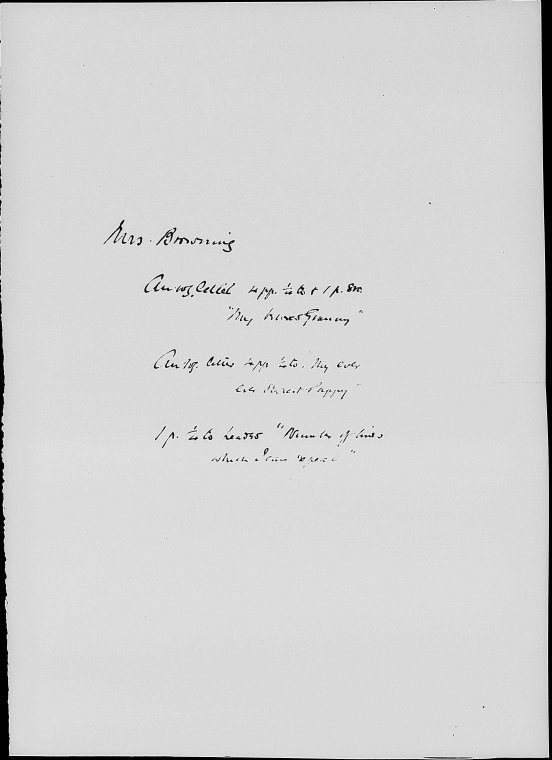 Mrs. Browning
Autog. Letter 4 pp. 4to & 1 p. 8vo.
"My dearest Granny"
Autog. letter 4 pp 4to. My ever
ever dearest Puppy"
1 p. 4to headed "Number of lines
which I can repeat"